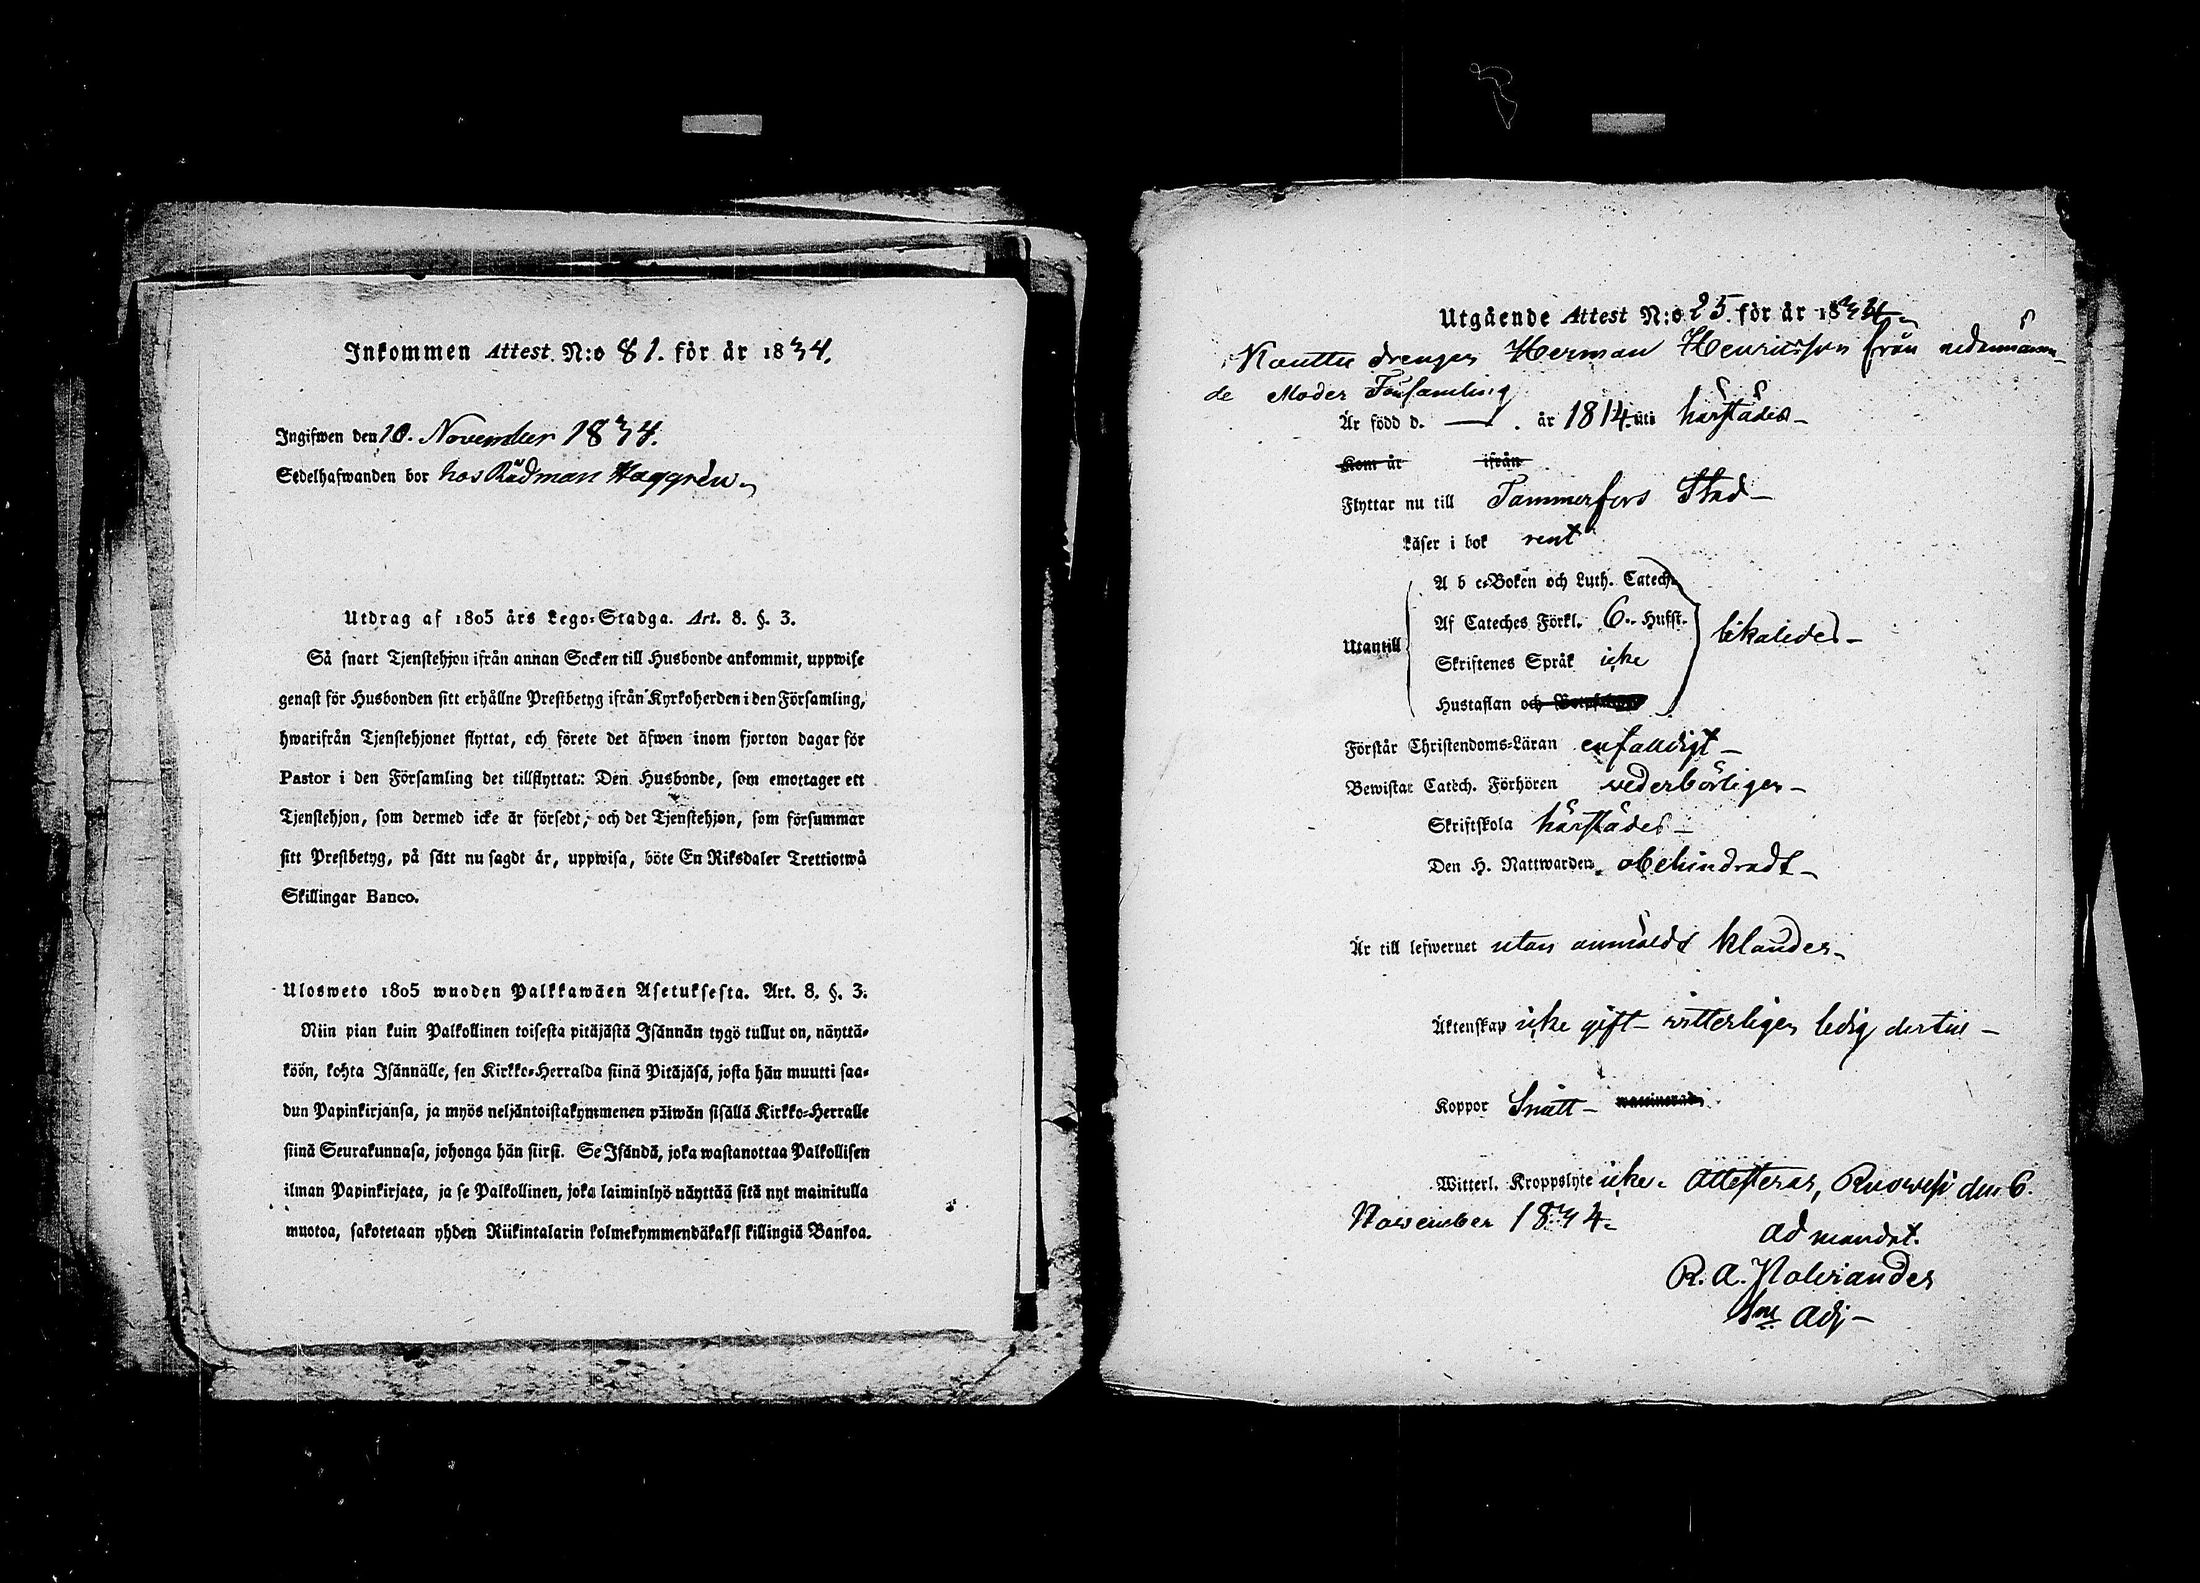 Inkommen Attest N:o 81. för år 1834.
Ingifwen den 10. November 1834.
Sedelhafwanden bor hos Rådman Haggrén
Utdrag af 1805 års Lego-Stadga. Art. 8. §. 3.
Så snart Tjenstehjon ifrån annan Socken till Husbonde ankommit, uppwise
genast för Husbonden sitt erhållne Prestbetyg ifrån Kyrkoherden i den Församling,
hwarifrån Tjenstehjonet flyttat, och förete det äfwen inom fjorton dagar för
Pastor i den Församling det tillflyttat: Den Husbonde, som emottager ett
Tjenstehjon, som dermed icke är försedt, och det Tjenstehjon, som försummar
sitt Prestbetyg, på sätt nu sagdt är, uppwisa, böte En Riksdaler Trettiotwå
Skillingar Banco.
Ulosweto 1805 wuoden Palkkawäen Asetuksesta. Art. 8. §. 3.
Niin pian kuin Palkollinen toisesta pitäjästä Isännän tygö tullut on, näyttä-
köön, kohta Isännälle, sen Kirkko-Herralda siinä Pitäjäsä, josta hän muutti saa-
dun Papinkirjansa, ja myös neljäntoistakymmenen päiwän sisällä Kirkko-Herralle
siinä Seurakunnasa, johonga hän siirsi. Se Isändä, joka wastanottaa Palkollisen
ilman Papinkirjata, ja se Palkollinen, joka laiminlyö näyttää sitä nyt mainitulla
muotoa, sakotetaan yhden Riikintalarin kolmekymmendäkaksi killingiä Bankoa.
Utgående Attest N:o 25. för år 1834
Kauttu drengen Herman Henriksson från nedannämn-
de Moder Församling
Är född d. — . år 1814. uti härstädes
Kom år ifrån
Flyttar nu till Tammerfors Stad
Läser i bok rent
A b c-Boken och Luth. Catech.
Af Cateches Förkl. 6. Hufst.
Utantill likaledes
Skriftenes Språk icke
Hustaflan och
Förstår Christendoms-Läran enfaldigt
Bewistar Catech. Förhören vederbörligen
Skriftskola härstädes
Den H. Nattwarden obehindradt
Är till lefwernet utan anmäldt klander
Äktenskap icke gift witterligen ledig dertill
Koppor Smått waccinerad
Witterl. Kroppslyte icke. Attesterar, Ruowesi den 6.
November 1834.
Ad mandat.
R. A. Polviander
Adj